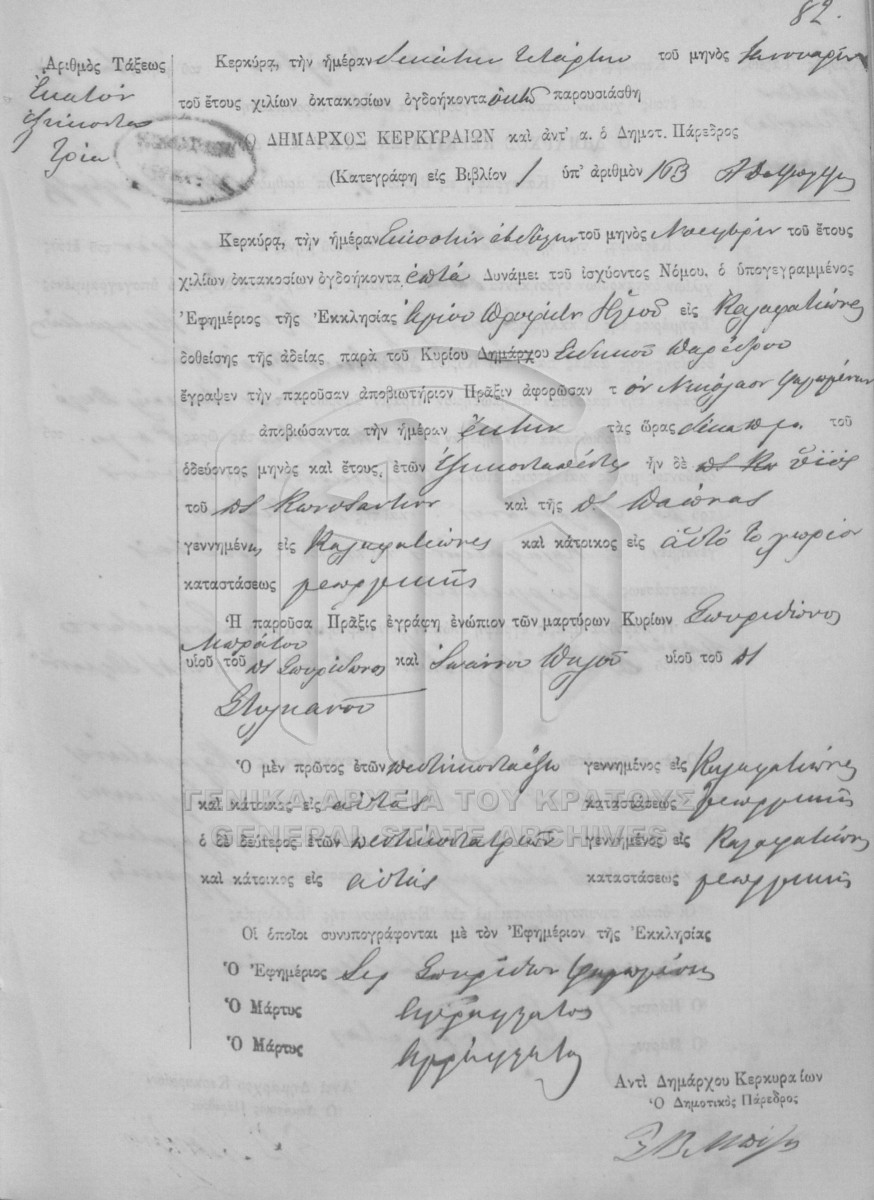 82.
Ἀριθμὸς Τάξεως
Ἑκατὸν
ἑξήκοντα
τρία
Κερκύρᾳ, τὴν ἡμέραν δεκάτην τετάρτην τοῦ μηνὸς Ἰανουαρίου
τοῦ ἔτους χιλίων ὀκτακοσίων ὀγδοήκοντα ὀκτὼ παρουσιάσθη
Ὁ ΔΗΜΑΡΧΟΣ ΚΕΡΚΥΡΑΙΩΝ καὶ ἀντ' α. ὁ Δημοτ. Πάρεδρος
(Κατεγράφη εἰς Βιβλίον 1 ὑπ' ἀριθμὸν 163
Κερκύρᾳ, τὴν ἡμέραν Εἰκοστὴν ἑβδόμην τοῦ μηνὸς Νοεμβρίου τοῦ ἔτους
χιλίων ὀκτακοσίων ὀγδοήκοντα ἑπτὰ Δυνάμει τοῦ ἰσχύοντος Νόμου. ὁ ὑπογεγραμμένος
Ἐφημέριος τῆς Ἐκκλησίας Ἁγίου Προφήτου Ἠλιοῦ εἰς Καλαφατιώνες
δοθείσης τῆς ἀδείας παρὰ τοῦ Κυρίου Δημάρχου Εἰδικοῦ Παρέδρου
ἔγραψεν τὴν παροῦσαν ἀποβιωτήριον Πρᾶξιν ἀφορῶσαν τ ὸν Νικόλαον
ἀποβιώσαντα τὴν ἡμέραν ἕκτην τὰς ὥρας δέκα π.μ. τοῦ
ὁδεύοντος μηνὸς καὶ ἔτους, ἐτῶν ἑξηκονταπέντε ἦν δὲ υἱὸς
τοῦ πτ Κωνσταντίνου καὶ τῆς πτ.
γεννημένος εἰς Καλαφατιώνες καὶ κάτοικος εἰς αὐτὸ τὸ χωρίον
καταστάσεως γεωργικῆς
Ἡ παροῦσα Πρᾶξις ἐγράφη ἐνώπιον τῶν μαρτύρων Κυρίων Σπυρίδωνος
υἱοῦ τοῦ πτ Σπυρίδωνος καὶ Ἰωάννου υἱοῦ τοῦ πτ
Στυλιανοῦ
Ὁ μὲν πρῶτος ἐτῶν πεντήκοντα ἕξι γεννημένος εἰς Καλαφατιώνες
καὶ κάτοικος εἰς αὐτὰς καταστάσεως γεωργικῆς
ΓΕΝΙΚΑ ΑΡΧΕΙΑ ΤΟΥ ΚΡΑΤΟΥΣ
GENERAL STATE ARCHIVES
ὁ δὲ δεύτερος ἐτῶν πεντήκοντα τριῶν γεννημένος εἰς Καλαφατιώνες
καὶ κάτοικος εἰς αὐτάς καταστάσεως γεωργικῆς
Οἱ ὁποῖοι συνυπογράφονται μὲ τὸν Ἐφημέριον τῆς Ἐκκλησίας
Ὁ Ἐφημέριος Σπυρίδων
Ὁ Μάρτυς ἀγράμματος
Ὁ Μάρτυς ἀγράμματος
Ἀντὶ Δημάρχου Κερκυραίων
Ὁ Δημοτικὸς Πάρεδρος